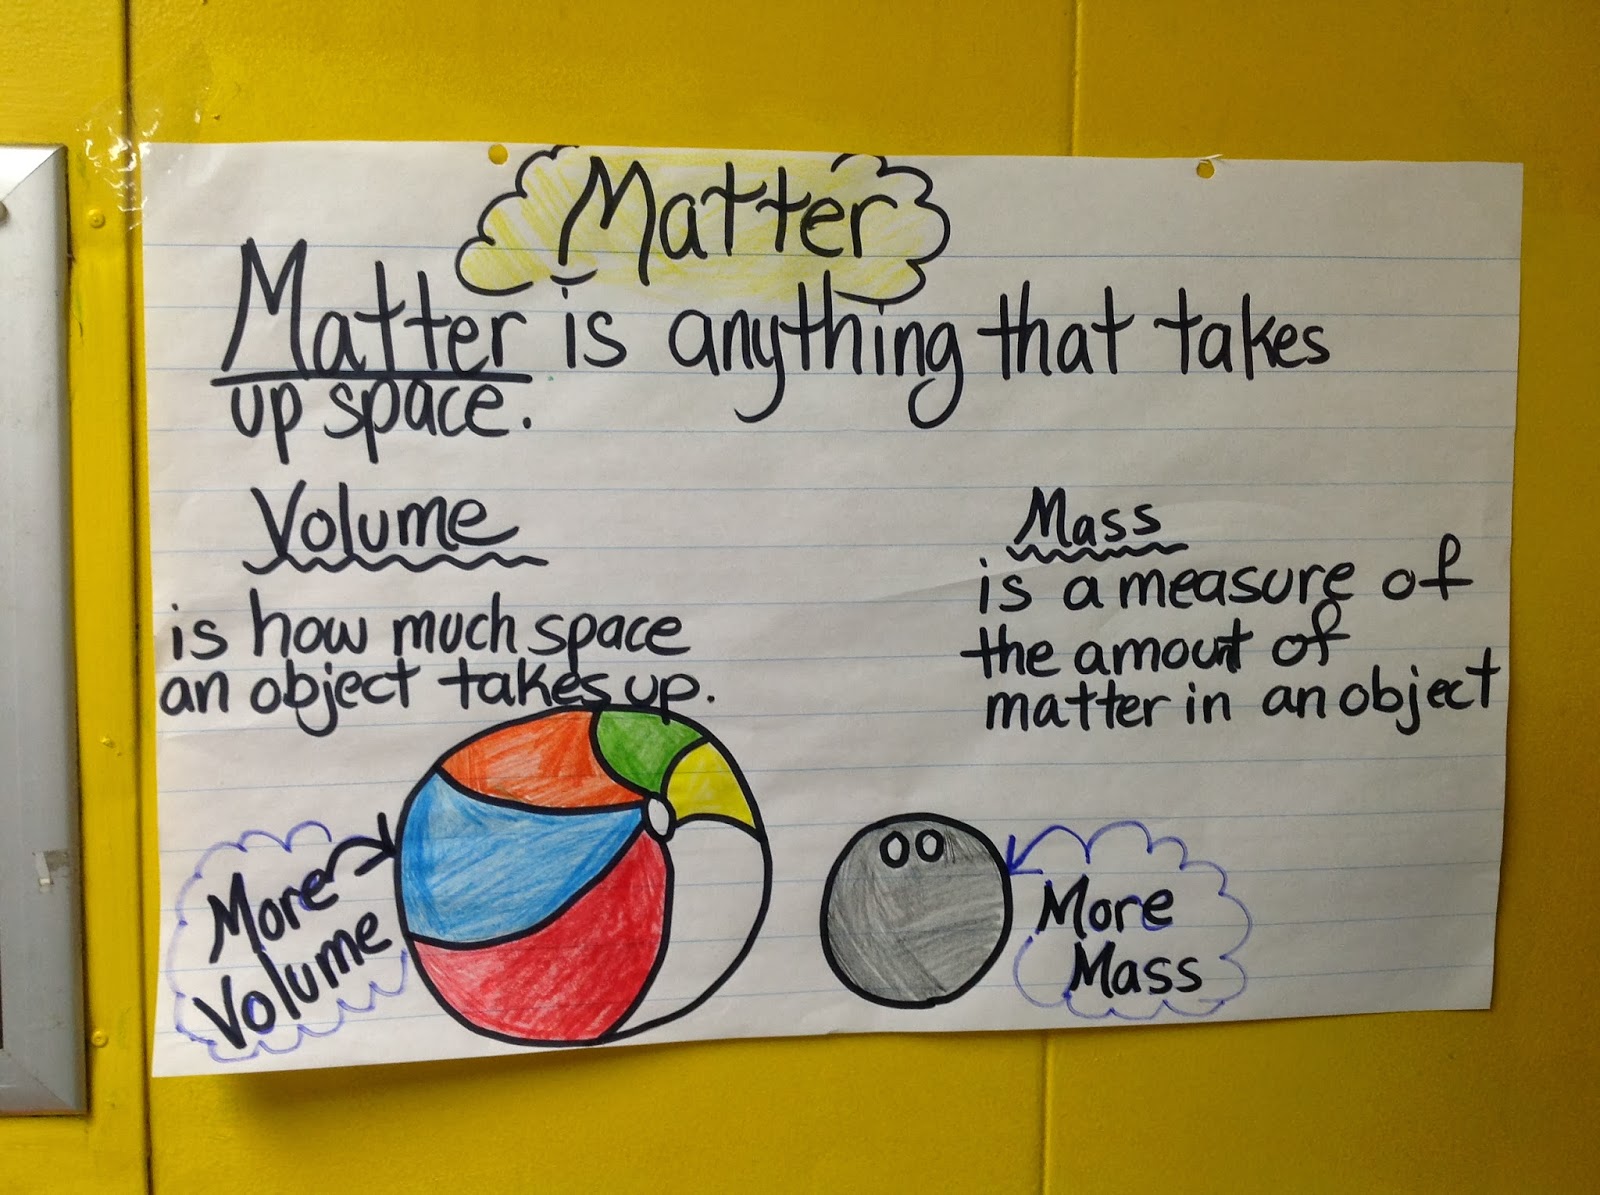 Matter
Matter is anything that takes
up space.
Volume
is how much space
an object takes up.
Mass
is a measure of
the amount of
matter in an object
More
Volume
More
Mass